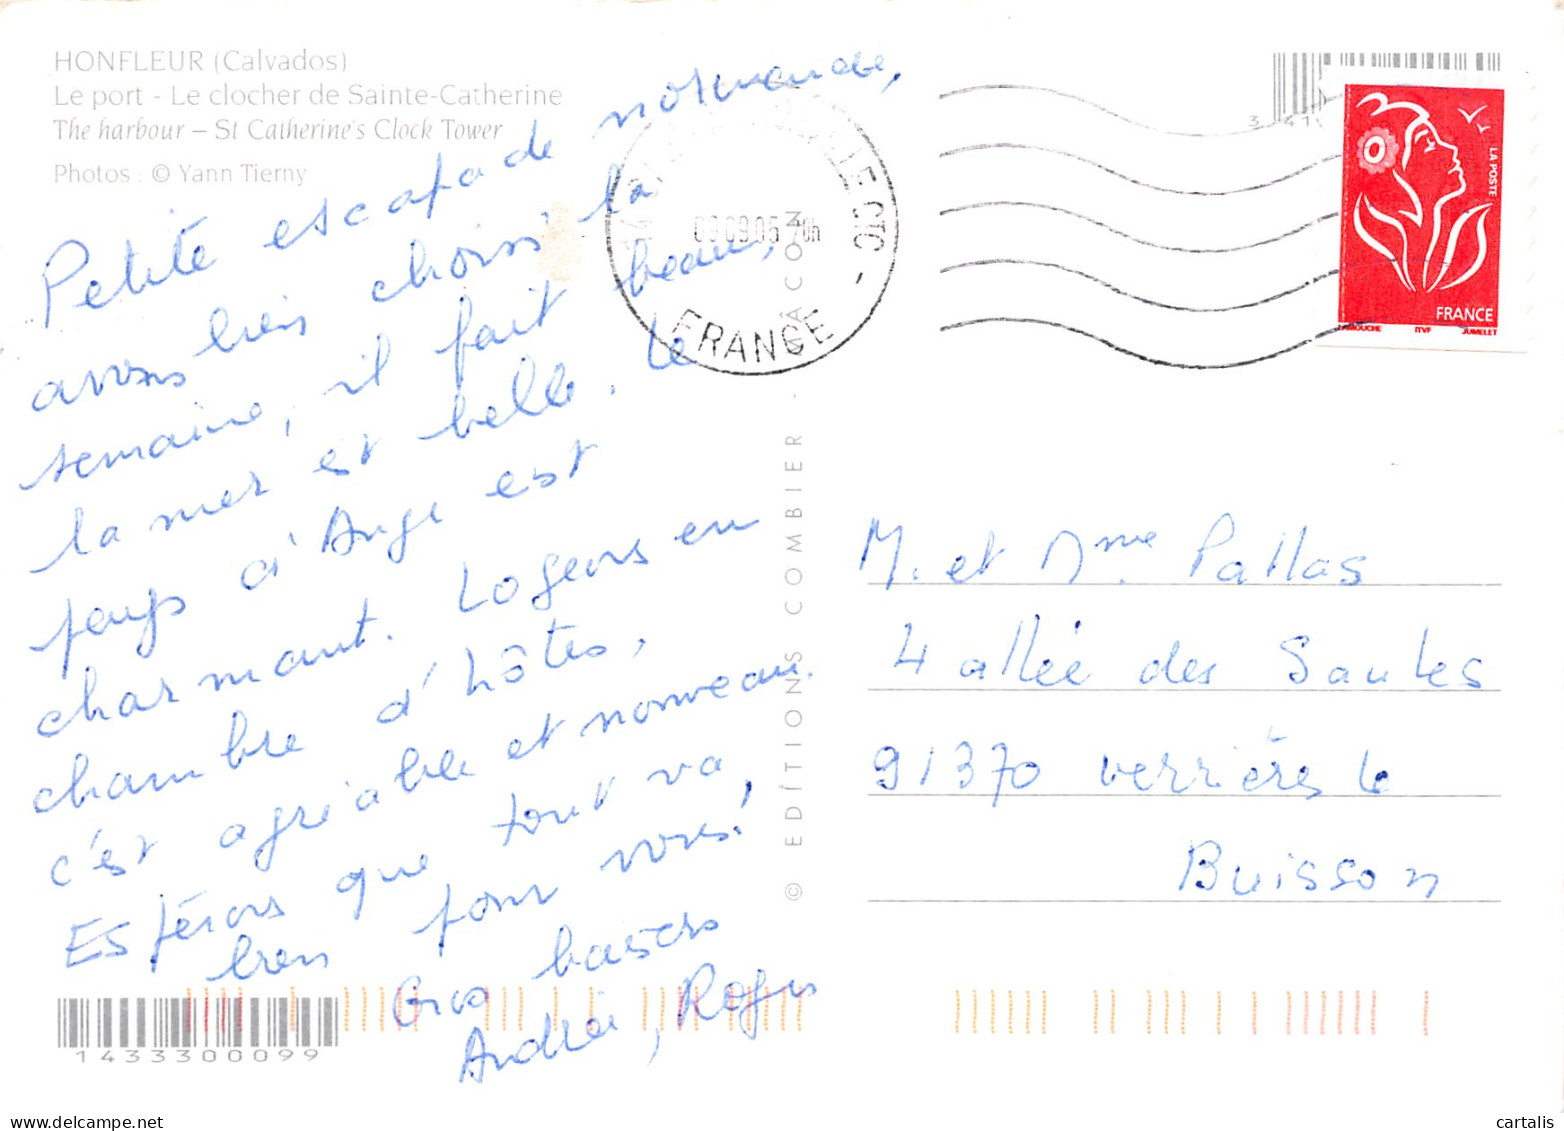 HONFLEUR (Calvados)
Le port - Le clocher de Sainte-Catherine
The harbour – St Catherine's Clock Tower
Photos : © Yann Tierny
Petite escapade normande,
avons bien choisi la
semaine, il fait beau,
la mer est belle. Le
pays d'Auge est
charmant. Logeons en
chambre d'hôtes,
c'est agréable et nouveau.
Espérons que tout va,
bien pour vous!
Gros baisers
Andrée, Roger
1433300099
© EDITIONS COMBIER - MÂCON
CTC -
FRANCE
LA POSTE
FRANCE
ITVF
JUMELET
M. et Mme Pallas
4 allée des Saules
91370 verrières le
Buisson
cartalis
www.delcampe.net